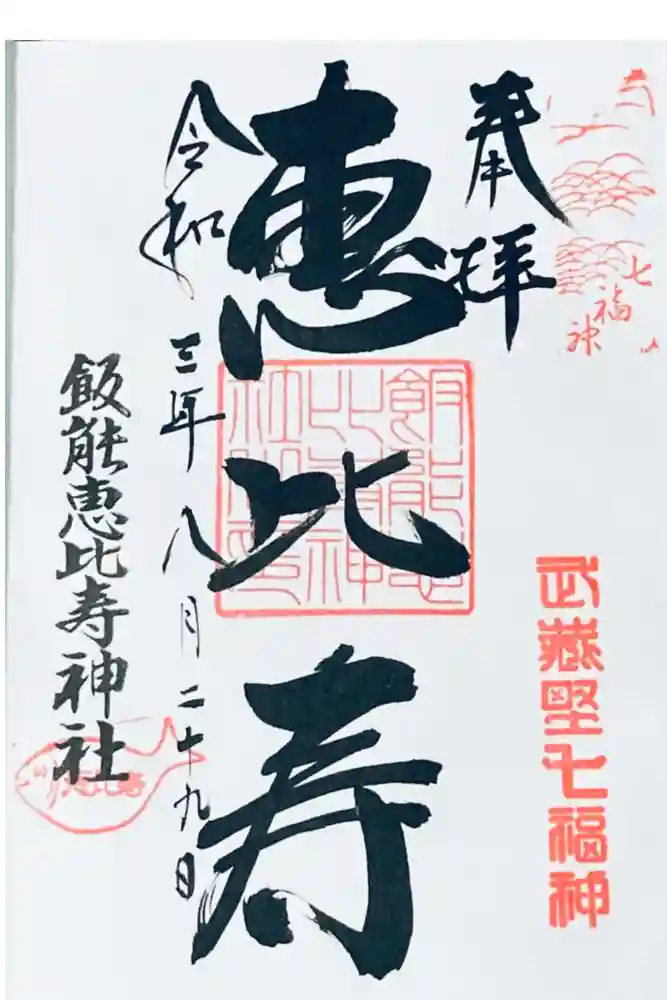 七福神
奉拝
武蔵野七福神
恵比寿
飯能恵比寿神社印
令和三年八月二十九日
飯能恵比寿神社